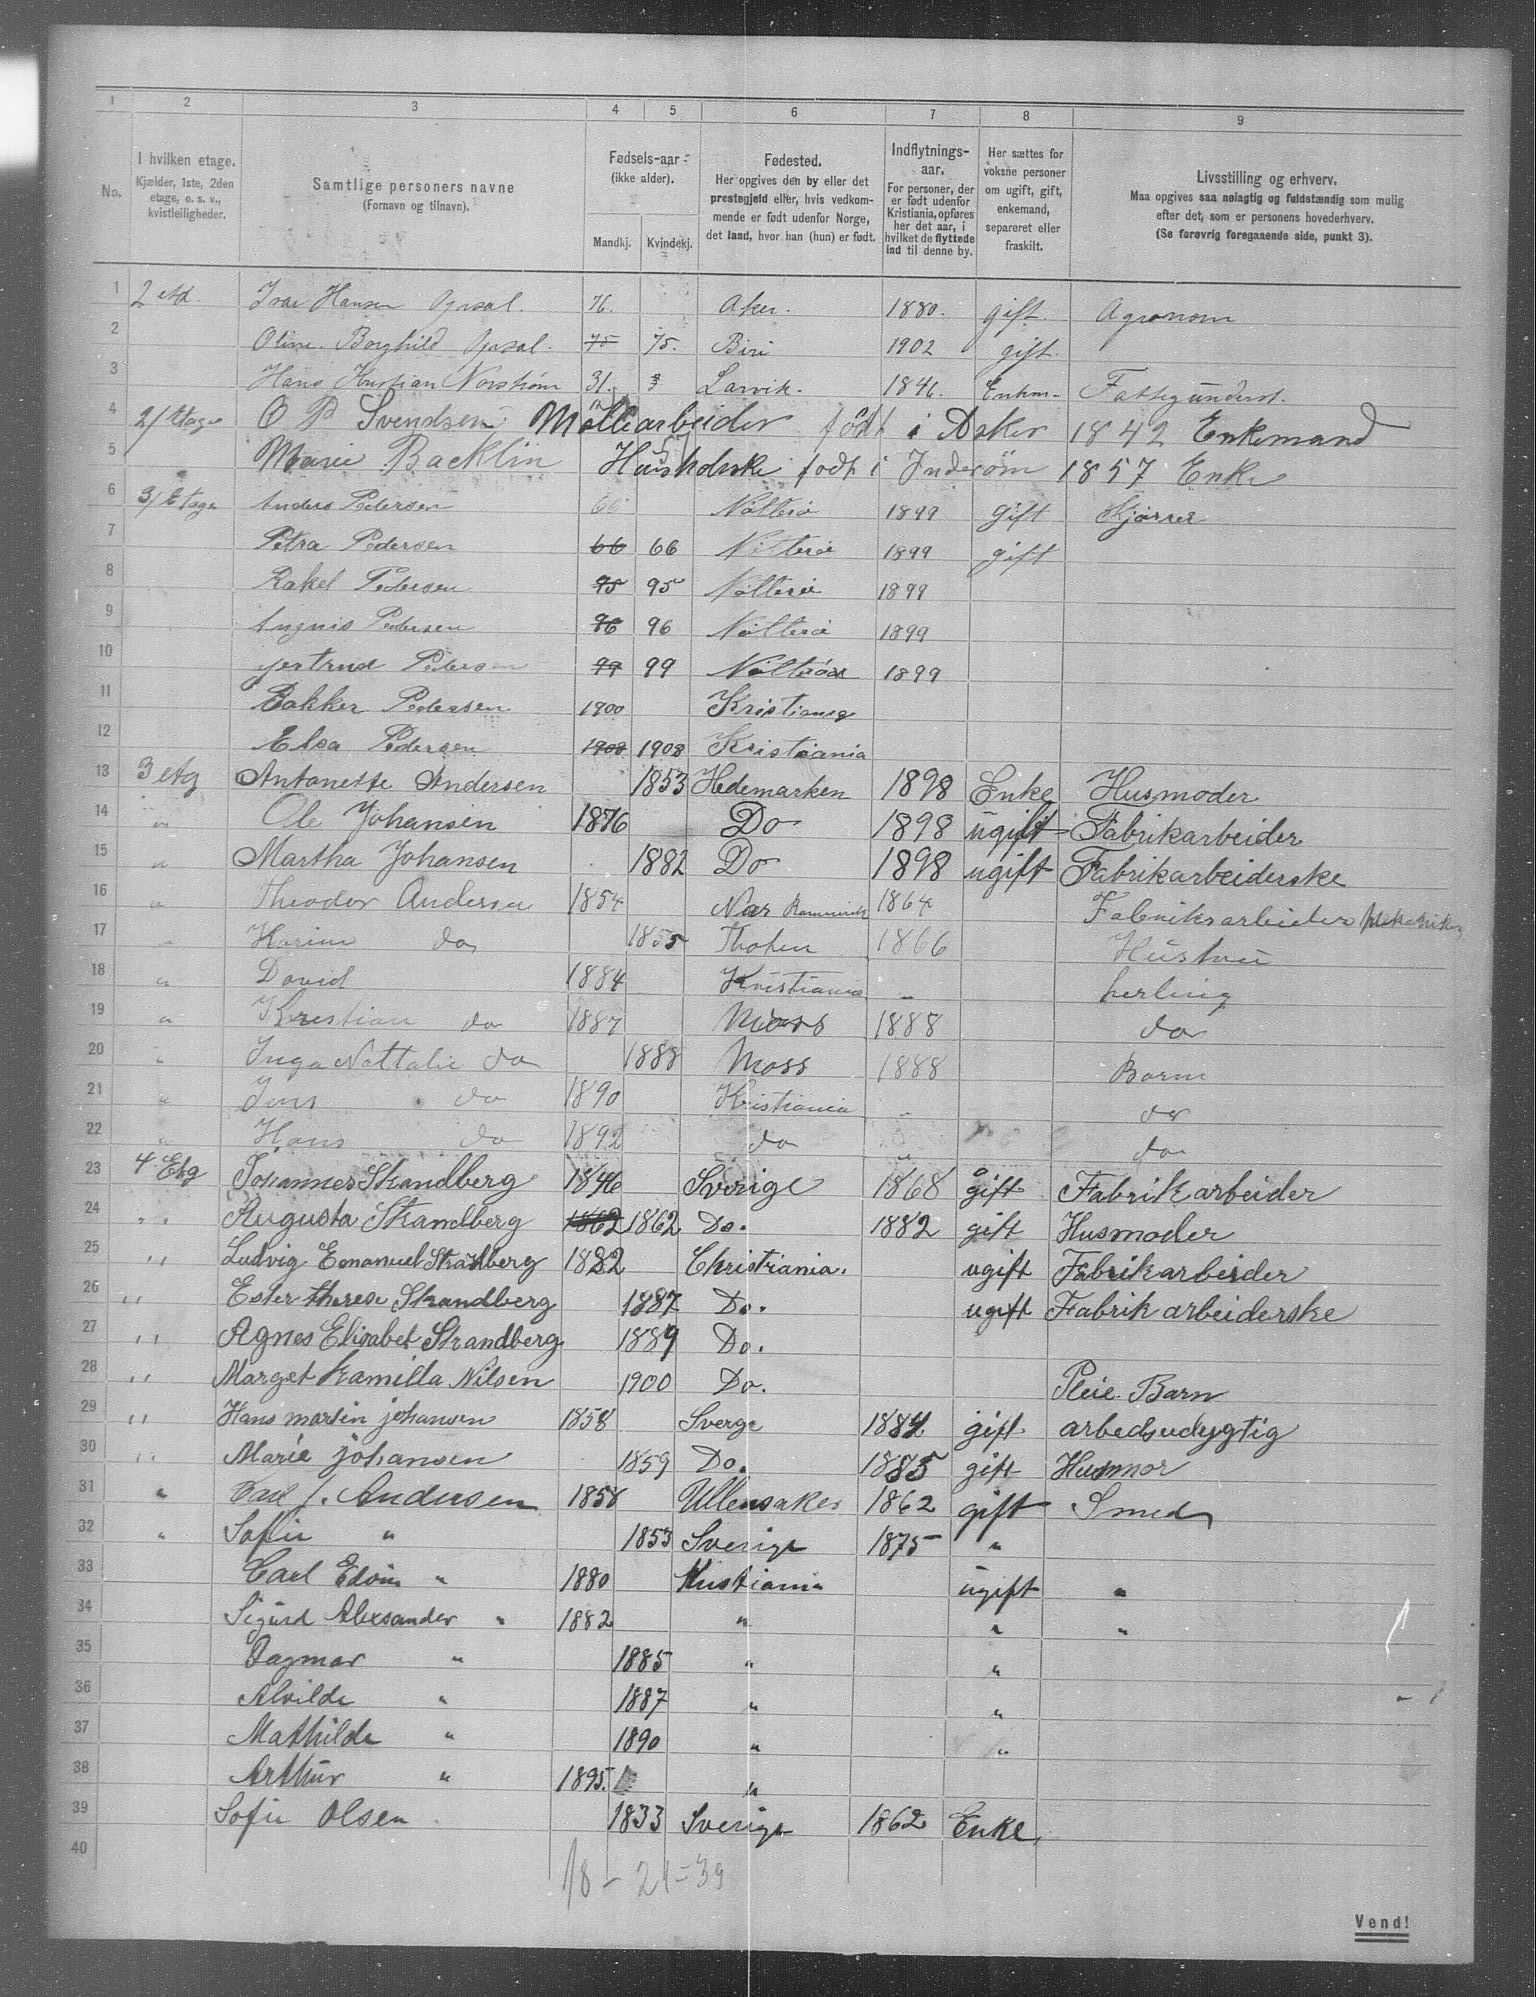 1 2 3 4 5 6 7 8 9
No. I hvilken etage. Kjælder, 1ste, 2den etage, o. s. v., kvistleiligheder. Samtlige personers navne (Fornavn og tilnavn). Fødsels-aar (ikke alder). Mandkj. Kvindekj. Fødested. Her opgives den by eller det prestegjeld eller, hvis vedkommende er født udenfor Norge, det land, hvor han (hun) er født. Indflytnings-aar. For personer, der er født udenfor Kristiania, opføres her det aar, i hvilket de flyttede ind til denne by. Her sættes for voksne personer om ugift, gift, enkemand, separeret eller fraskilt. Livsstilling og erhverv. Maa opgives saa nøiagtig og fuldstændig som mulig efter det, som er personens hovederhverv. (Se forøvrig foregaaende side, punkt 3).
1 2 etd. Ivar Hansen 76. Aker. 1880. gift. Agronom
2 Oline Borghild 75 75. Biri 1902 gift.
3 Hans Kristian Norstrøm 31. Larvik. 1846. Enkm- Fattigunderst.
4 2/ Etage O P Svendsen Møllearbeider født i Asker 1842 Enkemand
5 Marie Backlin Husholdske født i Inderøen 1857 Enke
6 3/ Etage Anders Pedersen 66 Nøtterø 1899 gift
7 Petra Pedersen 66 66 Nøtterø 1899 gift
8 Rakel Pedersen 95 95 Nøtterø 1899
9 Angnis Pedersen 96 96 Nøtterø 1899
10 Jertrud Pedersen 99 99 Nøtterø 1899
11 Pedersen 1900 Kristiania
12 Elsa Pedersen 1908 1908 Kristiania
13 3 etg Antonette Andersen 1853 Hedemarken 1898 Enke Husmoder
14 " Ole Johansen 1876 Do 1898 ugift Fabrikarbeider
15 " Martha Johansen 1882 Do 1898 ugift Fabrikarbeiderske
16 " Theodor Andersen 1854 Nær 1864 Fabriksarbeider
17 " Karine do 1855 Thoten 1866 Hustru
18 " David 1884 Kristiania " herling
19 " Krestian do 1887 Moss 1888 do
20 " Inga Nattalie do 1888 Moss 1888 Barn
21 " Jens do 1890 Kristiania " do
22 " Hans do 1892 do " do
23 4 Etg Johannes Strandberg 1846 Sverige 1868 gift Fabrikarbeider
24 " Augusta Strandberg 1862 1862 Do. 1882 gift Husmoder
25 " Ludvig Emanuel Strandberg 1882 Christiania. ugift Fabrikarbeider
26 " Ester therese Strandberg 1887 Do. ugift Fabrik arbeiderske
27 " Agnes Elisabet Strandberg 1889 Do.
28 " Marget Kamilla Nilsen 1900 Do. Pleie Barn
29 " Hans martin johansen 1858 Sverge 1884 gift arbedsudygtig
30 " Marie johansen 1859 Do. 1885 gift Husmor
31 " Carl J. Andersen 1858 Ullensaker 1862 gift Smed
32 " Sofie " 1853 Sverige 1875 "
33 Carl Edvin " 1880 Kristiania ugift "
34 Sigurd Alexsander " 1882 " " "
35 Dagmar " 1885 " "
36 Alvilde " 1887 " "
37 Mathilde " 1890 " "
38 Arthur " 1895. "
39 Sofie Olsen 1833 Sverige 1862 Enke.
40
18 - 21 = 39
Vend!